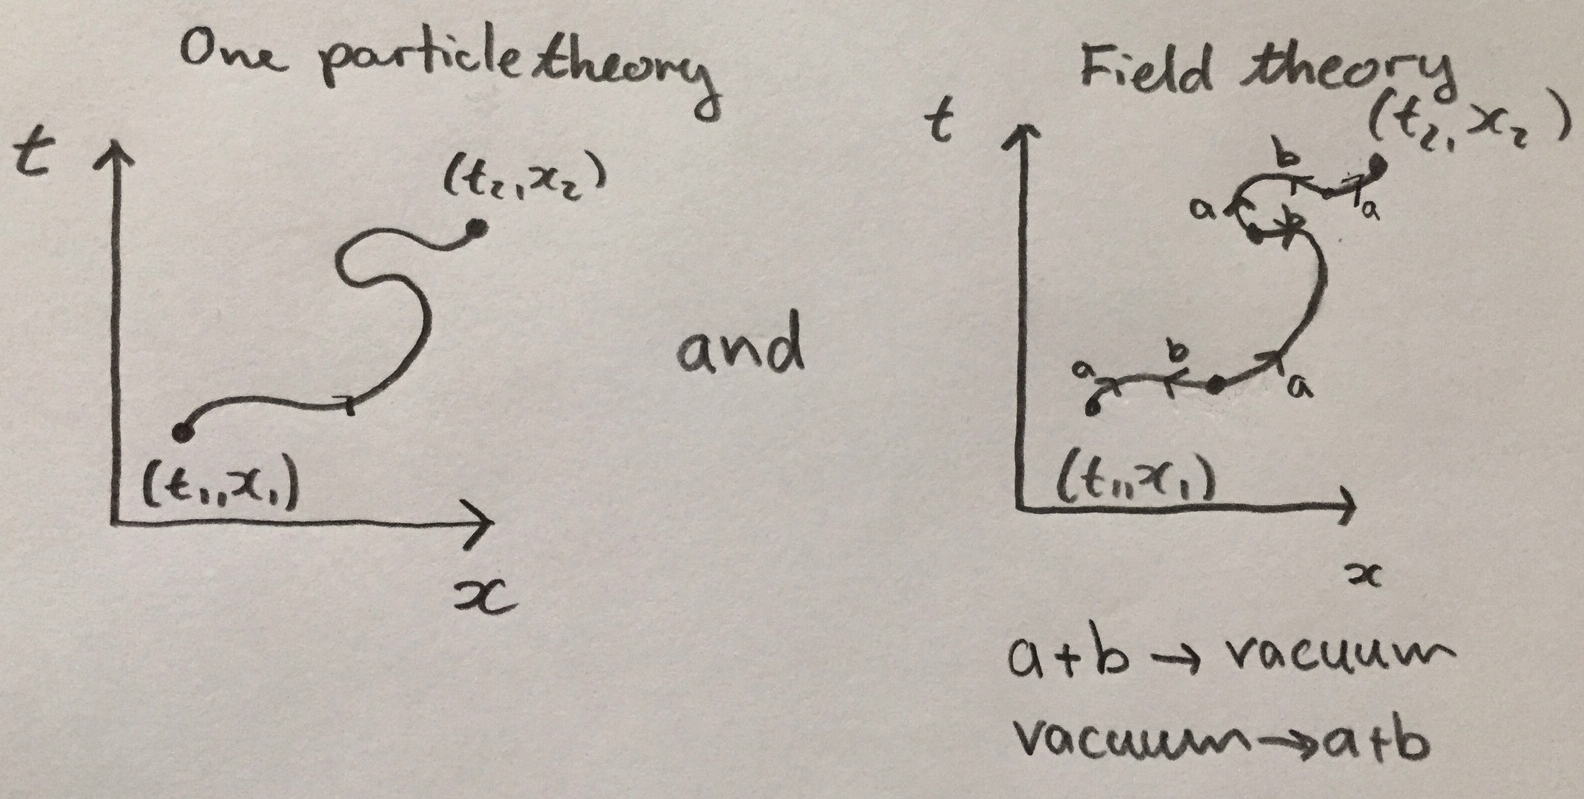 One particle theory
t
(t₂,x₂)
(t₁,x₁)
x
and
Field theory
(t₂,x₂)
t
b
a
a
b
a
b
a
(t₁,x₁)
x
a+b → vacuum
vacuum→a+b